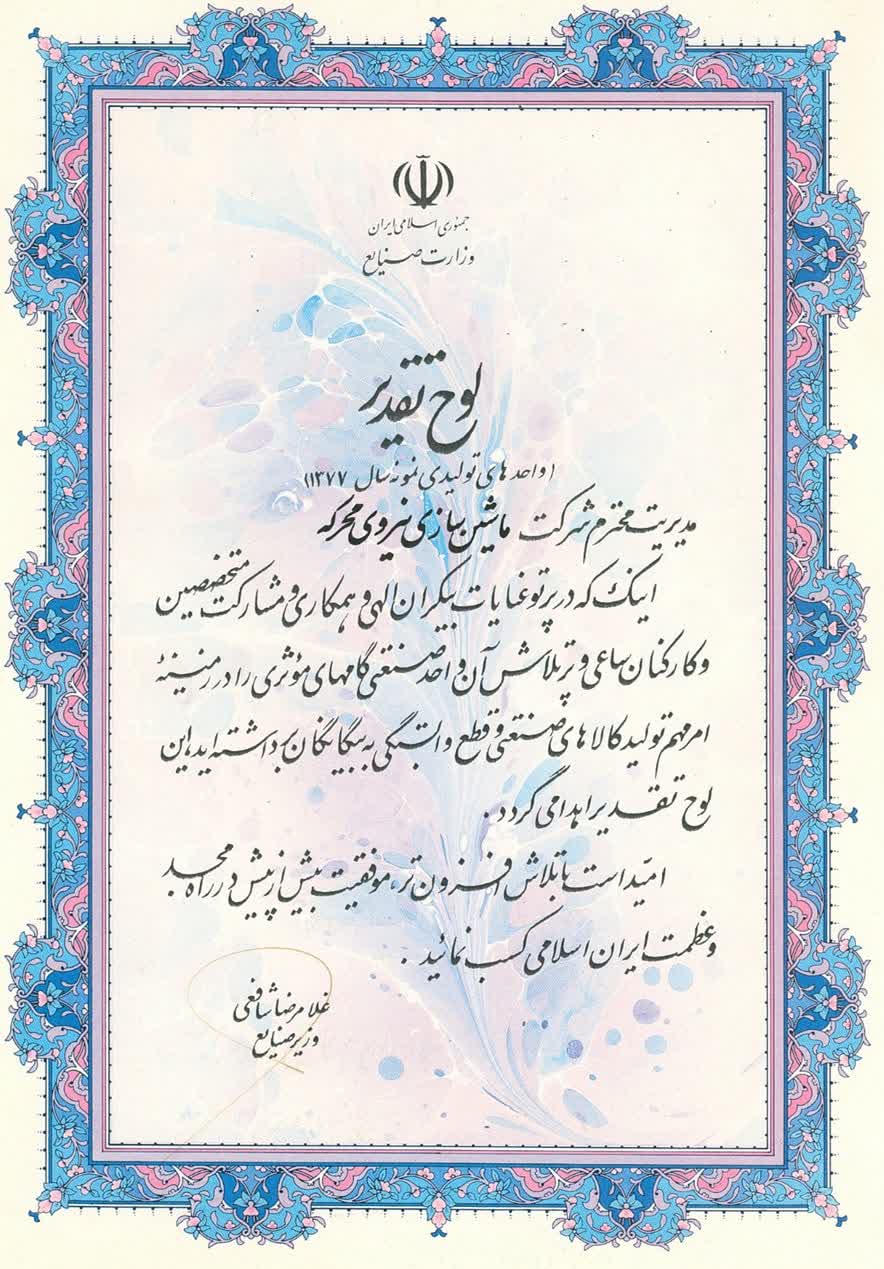 جمهوری اسلامی ایران
وزارت صنایع
لوح تقدیر
(واحدهای تولیدی نمونه سال ۱۳۷۷)
مدیریت محترم شرکت ماشین سازی نیروی محرکه
اینک که در پرتو عنایات بیکران الهی و همکاری و مشارکت متخصصین
و کارکنان ساعی و پرتلاش آن واحد صنعتی گامهای مؤثری را در زمینهٔ
امر مهم تولید کالاهای صنعتی و قطع وابستگی به بیگانگان برداشته اید، این
لوح تقدیر اهدا می گردد.
امید است با تلاش افزون تر، موفقیت بیش از پیش در راه مجد
و عظمت ایران اسلامی کسب نمائید.
غلامرضا شافعی
وزیر صنایع